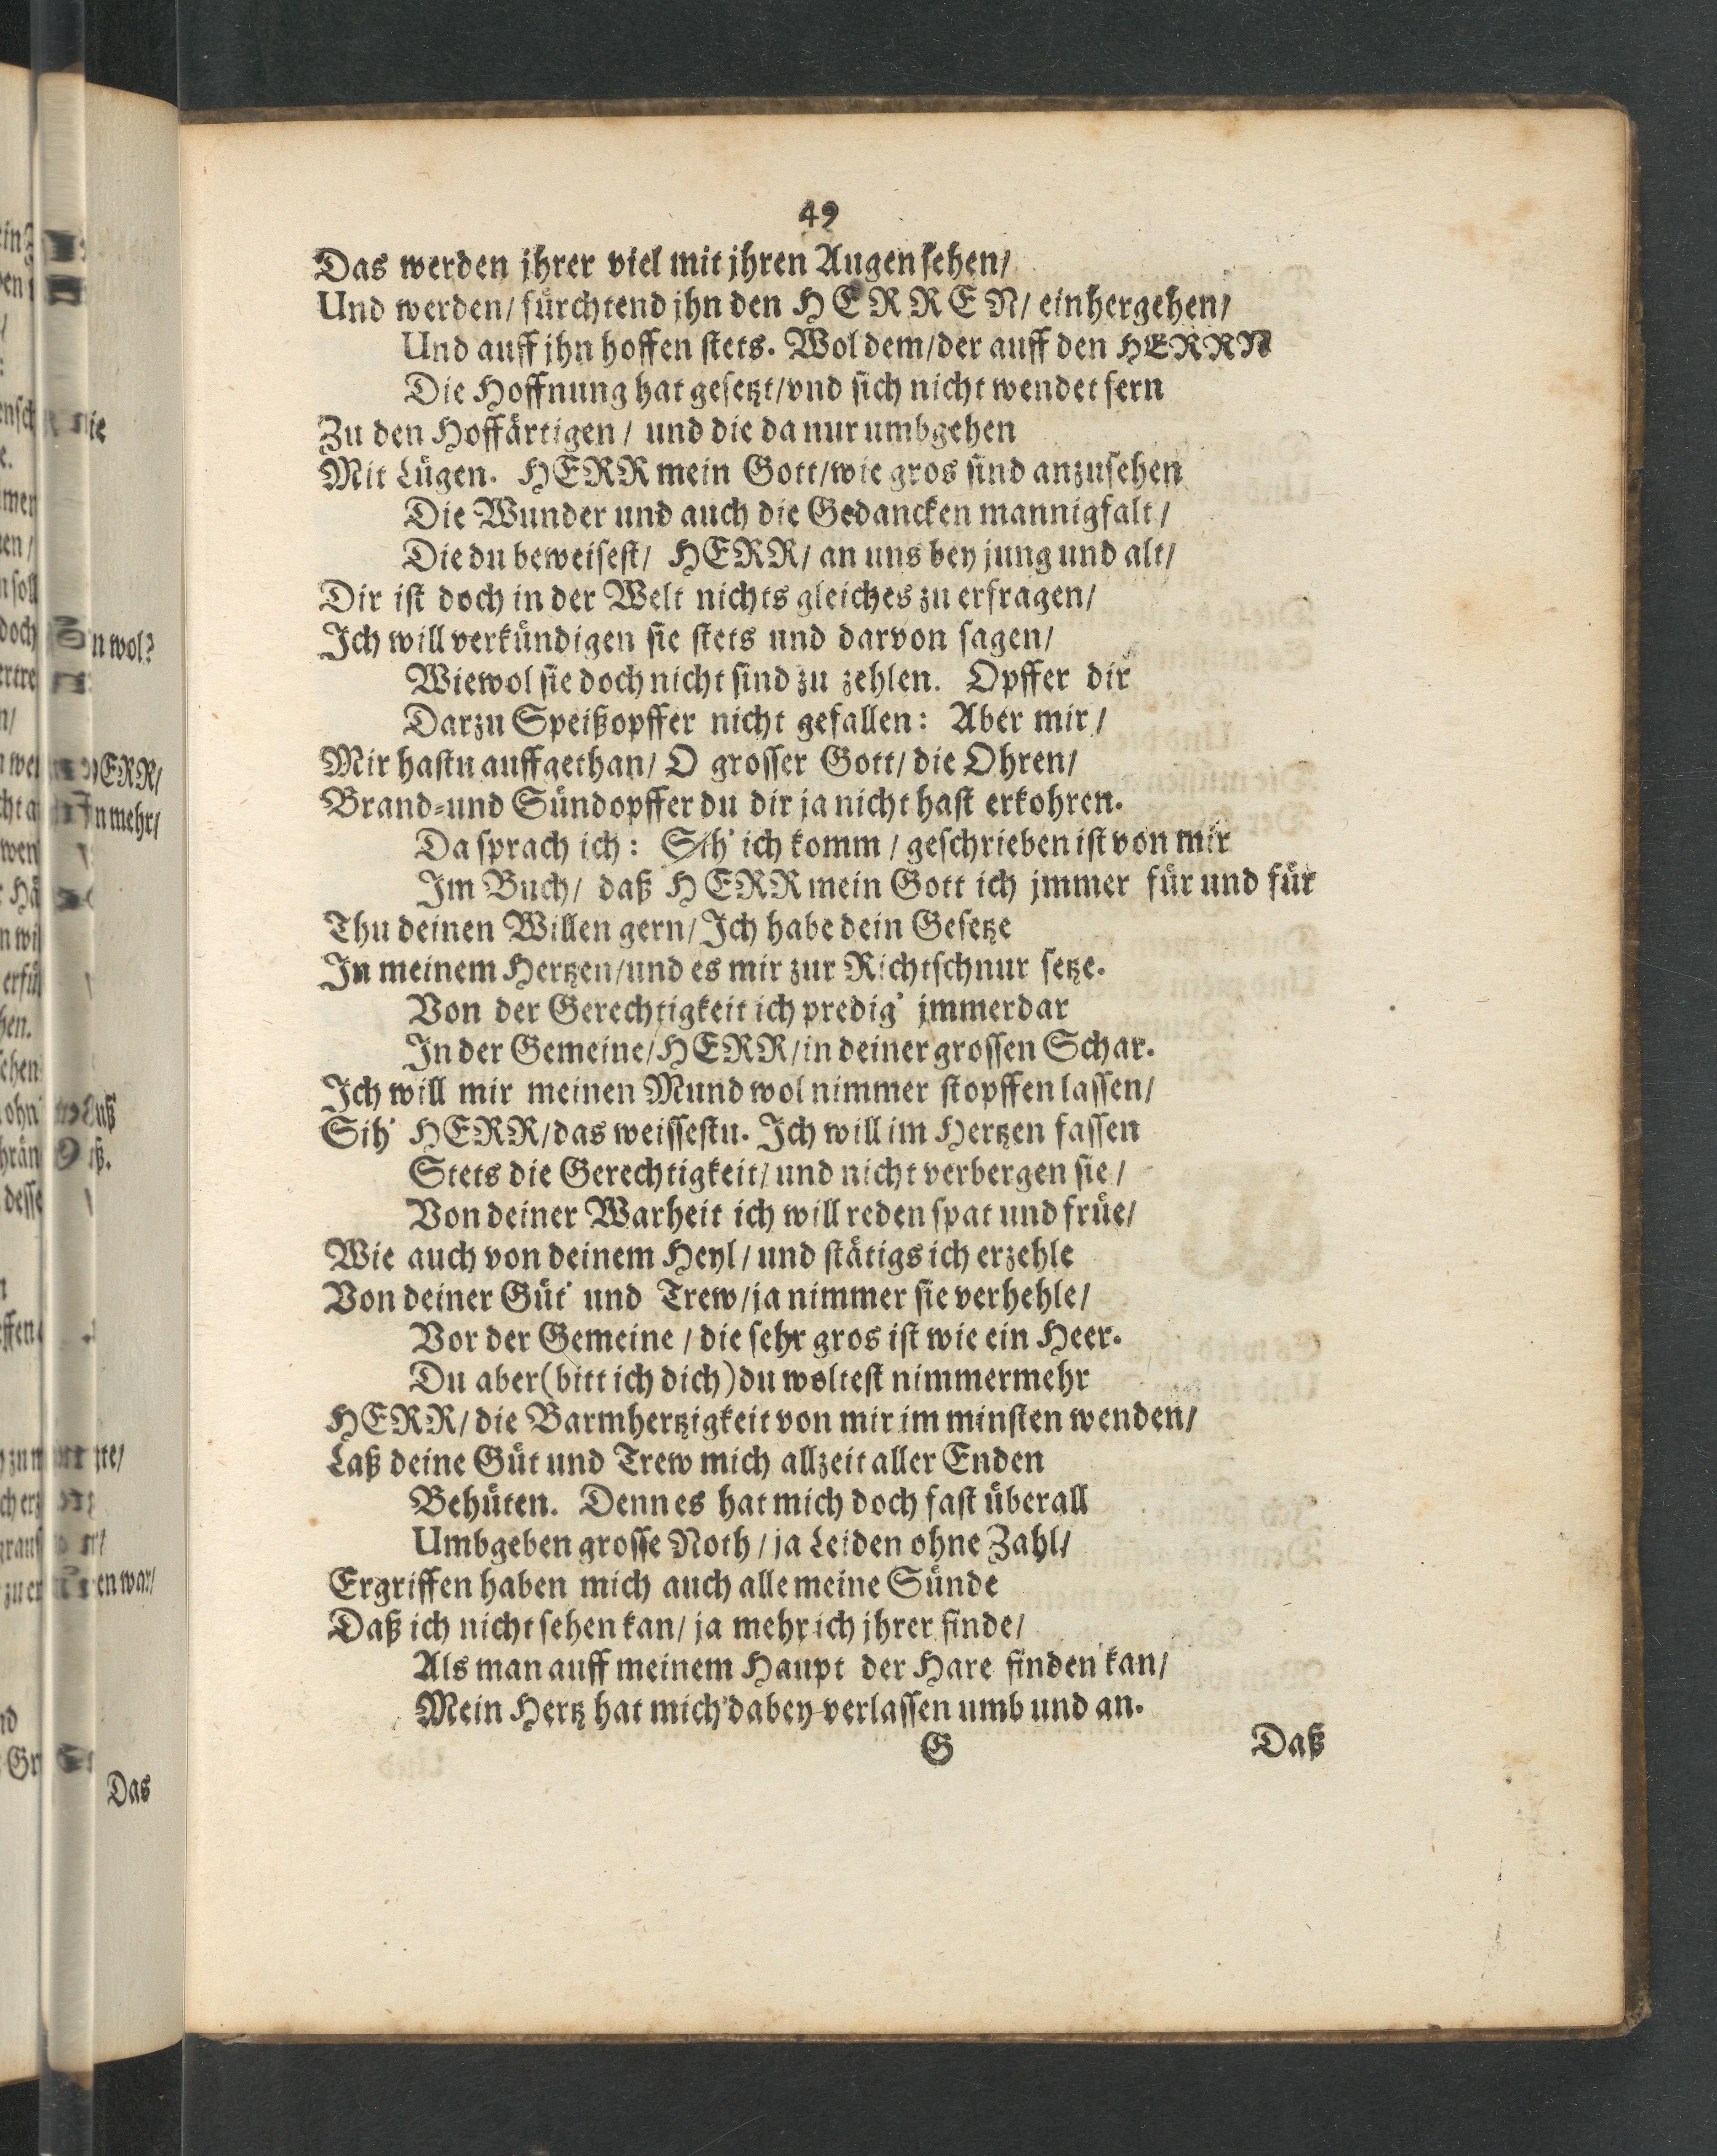 49
Das werden jhrer viel mit jhren Augen sehen/
Und werden/ fürchtend jhn den HERREN/ einhergehen/
Und auff jhn hoffen stets. Wol dem/der auff den HERRN
Die Hoffnung hat gesetzt/vnd sich nicht wendet fern
Zu den Hoffärtigen / und die da nur umbgehen
Mit Lügen. HERR mein Gott/wie gros sind anzusehen
Die Wunder und auch die Gedancken mannigfalt/
Die du beweisest/ HERR/ an uns bey jung und alt/
Dir ist doch in der Welt nichts gleiches zu erfragen/
Ich will verkündigen sie stets und darvon sagen/
Wiewol sie doch nicht sind zu zehlen. Opffer dir
Darzu Speißopffer nicht gefallen: Aber mir/
Mir hastu auffgethan/ O grosser Gott/ die Ohren/
Brand-und Sündopffer du dir ja nicht hast erkohren.
Da sprach ich: Sih' ich komm / geschrieben ist von mir
Im Buch/ daß HERR mein Gott ich jmmer für und für
Thu deinen Willen gern/Ich habe dein Gesetze
In meinem Hertzen/und es mir zur Richtschnur setze.
Von der Gerechtigkeit ich predig' jmmerdar
In der Gemeine/HERR/in deiner grossen Schar.
Ich will mir meinen Mund wol nimmer stopffen lassen/
Sih' HERR/das weissestu. Ich will im Hertzen fassen
Stets die Gerechtigkeit/ und nicht verbergen sie/
Von deiner Warheit ich will reden spat und früe/
Wie auch von deinem Heyl / und stätigs ich erzehle
Von deiner Güt' und Trew/ja nimmer sie verhehle/
Vor der Gemeine / die sehr gros ist wie ein Heer.
Du aber(bitt ich dich)du woltest nimmermehr
HERR/ die Barmhertzigkeit von mir im minsten wenden/
Laß deine Güt und Trew mich allzeit aller Enden
Behüten. Denn es hat mich doch fast überall
Umbgeben grosse Noth / ja Leiden ohne Zahl/
Ergriffen haben mich auch alle meine Sünde
Daß ich nicht sehen kan/ ja mehr ich jhrer finde/
Als man auff meinem Haupt der Hare finden kan/
Mein Hertz hat mich dabey verlassen umb und an.
G Daß
n wol?
ERR/
n mehr/
en war/
Das